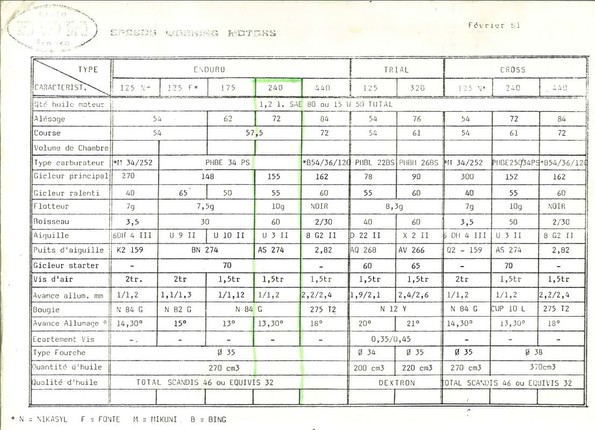 Février 81
SPEEDS WORKING MOTORS
TYPE ENDURO TRIAL CROSS
CARACTERIST. 125 N* 125 F* 175 240 440 125 320 125 N* 240 440
Qté huile moteur 1,2 l. SAE 80 ou 15 W 50 TOTAL
Alésage 54 62 72 84 54 76 54 72 84
Course 54 57,5 72 54 61 54 61 72
Volume de Chambre
Type carburateur *M 34/252 PHBE 34 PS *B54/36/120 PHBL 22BS PHBH 26BS *M 34/252 PHBE250/34PS *B54/36/120
Gicleur principal 270 148 155 162 78 90 300 152 162
Gicleur ralenti 40 65 50 55 60 55 60 40 55 60
Flotteur 7g 7,5g 10g NOIR 8,3g 7g 10g NOIR
Boisseau 3,5 30 60 2/30 40 60 3,5 50 2/30
Aiguille 6DH 4 III U 9 II U 10 II U 3 II 8 G2 II D 22 II X 2 II 6 DH 4 III U 3 II 8 G2 II
Puits d'aiguille K2 159 BN 274 AS 274 2,82 AQ 268 AV 266 Q2 - 159 AS 274 2,82
Gicleur starter - 70 - 60 65 - 70 -
Vis d'air 2tr. 2tr 1,5tr 1,5tr 1,5tr 1,5tr 1,5tr 2tr 1,5tr 1,5tr
Avance allum. mm 1/1,2 1,1/1,3 1/1,12 1/1,2 2,2/2,4 1,9/2,1 2,4/2,6 1/1,2 1/1,2 2,2/2,4
Bougie N 84 G N 82 G N 84 G 275 T2 N 12 Y N 84 G CUP 10 L 275 T2
Avance Allumage ° 14,30° 15° 13° 13,30° 18° 20° 21° 14,30° 13,30° 18°
Ecartement Vis - - - - - 0,35/0,45 - - -
Type Fourche Ø 35 Ø 34 Ø 35 Ø 35 Ø 38
Quantité d'huile 270 cm3 200 cm3 220 cm3 270 cm3 370cm3
Qualité d'huile TOTAL SCANDIS 46 ou EQUIVIS 32 DEXTRON TOTAL SCANDIS 46 ou EQUIVIS 32
* N = NIKASYL F = FONTE M = MIKUNI B = BING